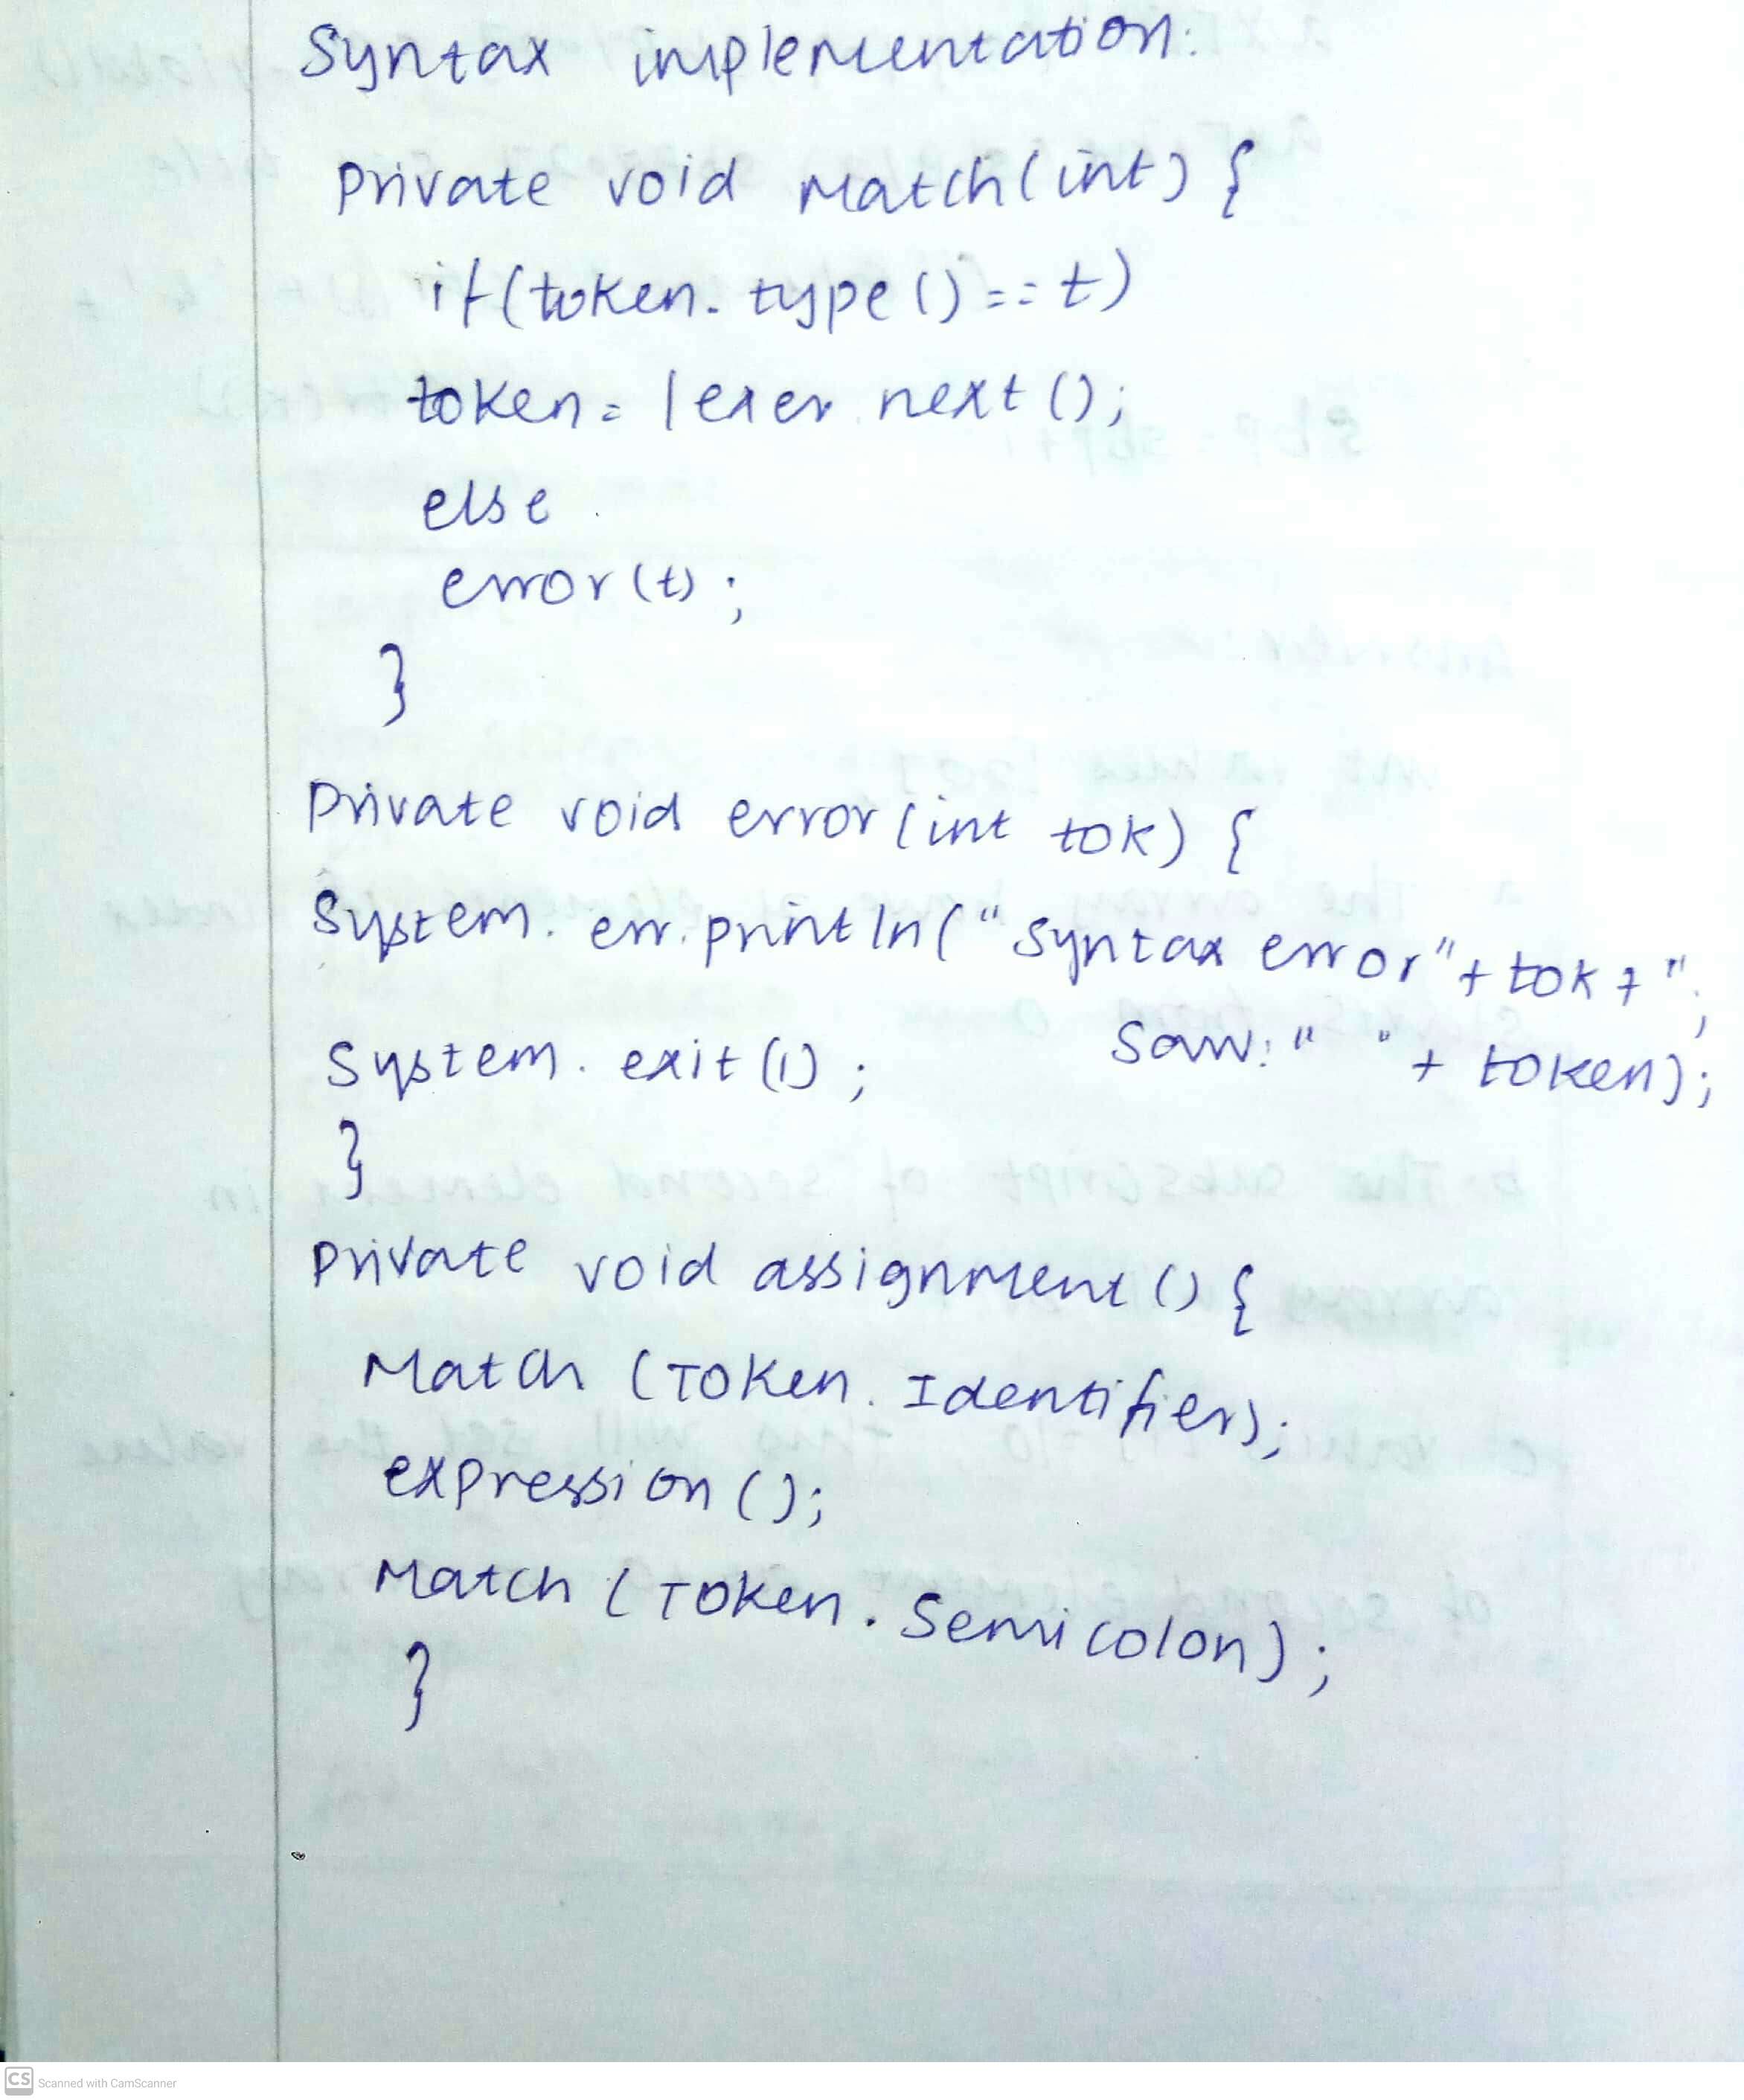 Syntax implementation:
Private void Match(int) {
if(token. type()==t)
token = lexer next();
else
error(t);
}
Private void error(int tok) {
System. err. println("Syntax error"+tok+";
Saw:" "+ token);
System. exit(1);
}
Private void assignment() {
Match (Token. Identifier);
expression();
Match (Token. Semicolon);
}
CS Scanned with CamScanner